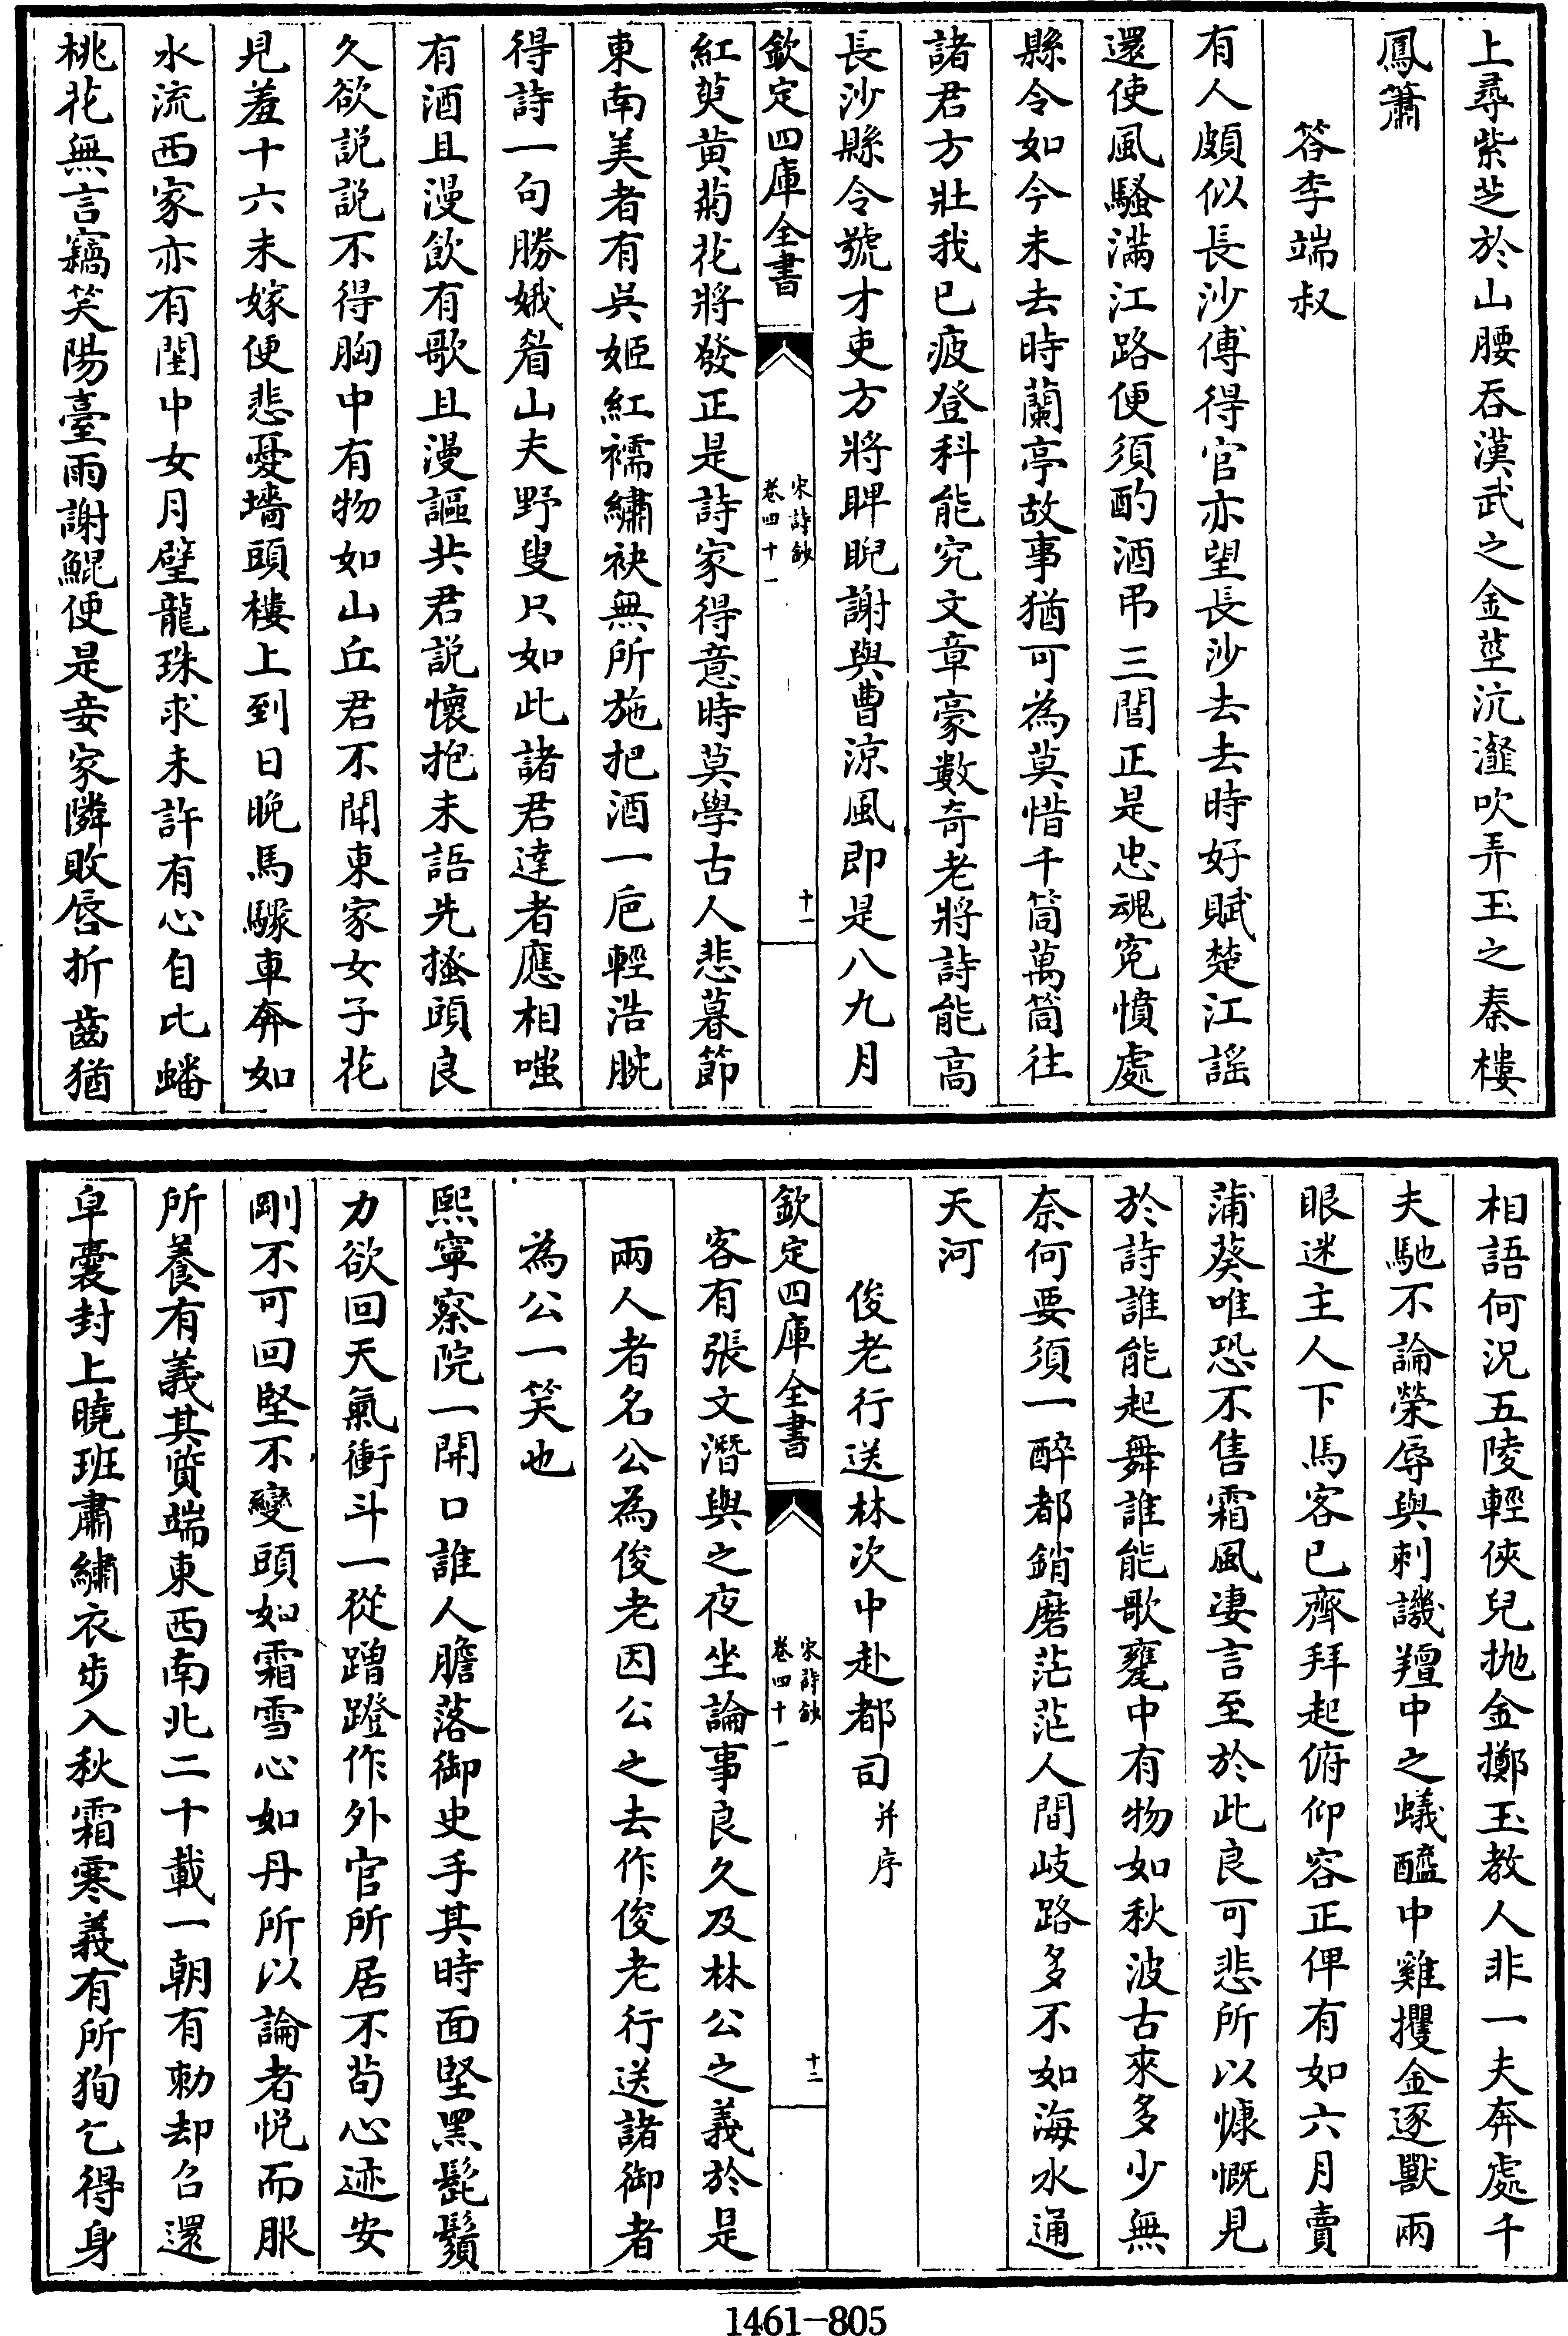 上尋紫芝於山腰吞漢武之金莖沆瀣吹弄玉之秦樓
鳳簫
答李端叔
有人頗似長沙傅得官亦望長沙去去時好賦楚江謡
還使風騷滿江路便須酌酒弔三閭正是忠魂寃憤處
縣令如今未去時蘭亭故事猶可為莫惜千筒萬筒往
諸君方壯我已疲登科能究文章豪數奇老將詩能高
長沙縣令號才吏方將睥睨謝與曹凉風即是八九月
欽定四庫全書
宋詩鈔
卷四十一
十一
紅萸黄菊花將發正是詩家得意時莫學古人悲暮節
東南美者有吳姬紅襦繡袂無所施把酒一巵輕浩腕
得詩一句勝娥眉山夫野叟只如此諸君達者應相嗤
有酒且漫飲有歌且漫謳共君説懷抱未語先搔頭良
久欲説説不得胸中有物如山丘君不聞東家女子花
見羞十六未嫁便悲憂墻頭樓上到日晚馬驟車奔如
水流西家亦有閨中女月壁龍珠求未許有心自比蟠
桃花無言竊笑陽臺雨謝鯤便是妾家隣敗唇折齒猶
相語何況五陵輕俠兒抛金擲玉教人非一夫奔處千
夫馳不論榮辱與刺譏羶中之蟻醯中雞攫金逐獸兩
眼迷主人下馬客已齊拜起俯仰容正俾有如六月賣
蒲葵唯恐不售霜風凄言至於此良可悲所以慷慨見
於詩誰能起舞誰能歌甕中有物如秋波古來多少無
奈何要須一醉都銷磨茫茫人間岐路多不如海水通
天河
俊老行送林次中赴都司并序
欽定四庫全書
宋詩鈔
卷四十一
十二
客有張文潛與之夜坐論事良久及林公之義於是
兩人者名公為俊老因公之去作俊老行送諸御者
為公一笑也
熙寧察院一開口誰人膽落御史手其時面堅黑髭鬚
力欲回天氣衝斗一從蹭蹬作外官所居不苟心迹安
剛不可回堅不變頭如霜雪心如丹所以論者悦而服
所養有義其質端東西南北二十載一朝有勅却召還
皁囊封上曉班肅繡衣步入秋霜寒義有所狥乞得身
1461-805